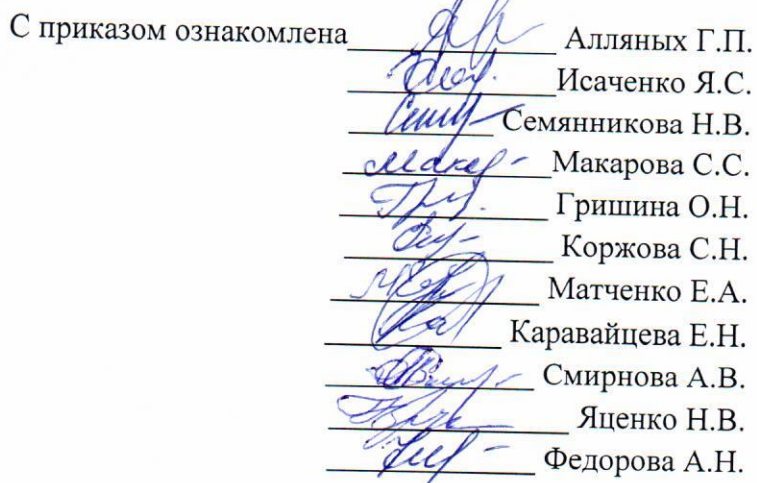 С приказом ознакомлена____________ Алляных Г.П.
____________Исаченко Я.С.
____________ Семянникова Н.В.
____________Макарова С.С.
____________ Гришина О.Н.
____________ Коржова С.Н.
____________ Матченко Е.А.
____________ Каравайцева Е.Н.
____________ Смирнова А.В.
____________ Яценко Н.В.
____________ Федорова А.Н.